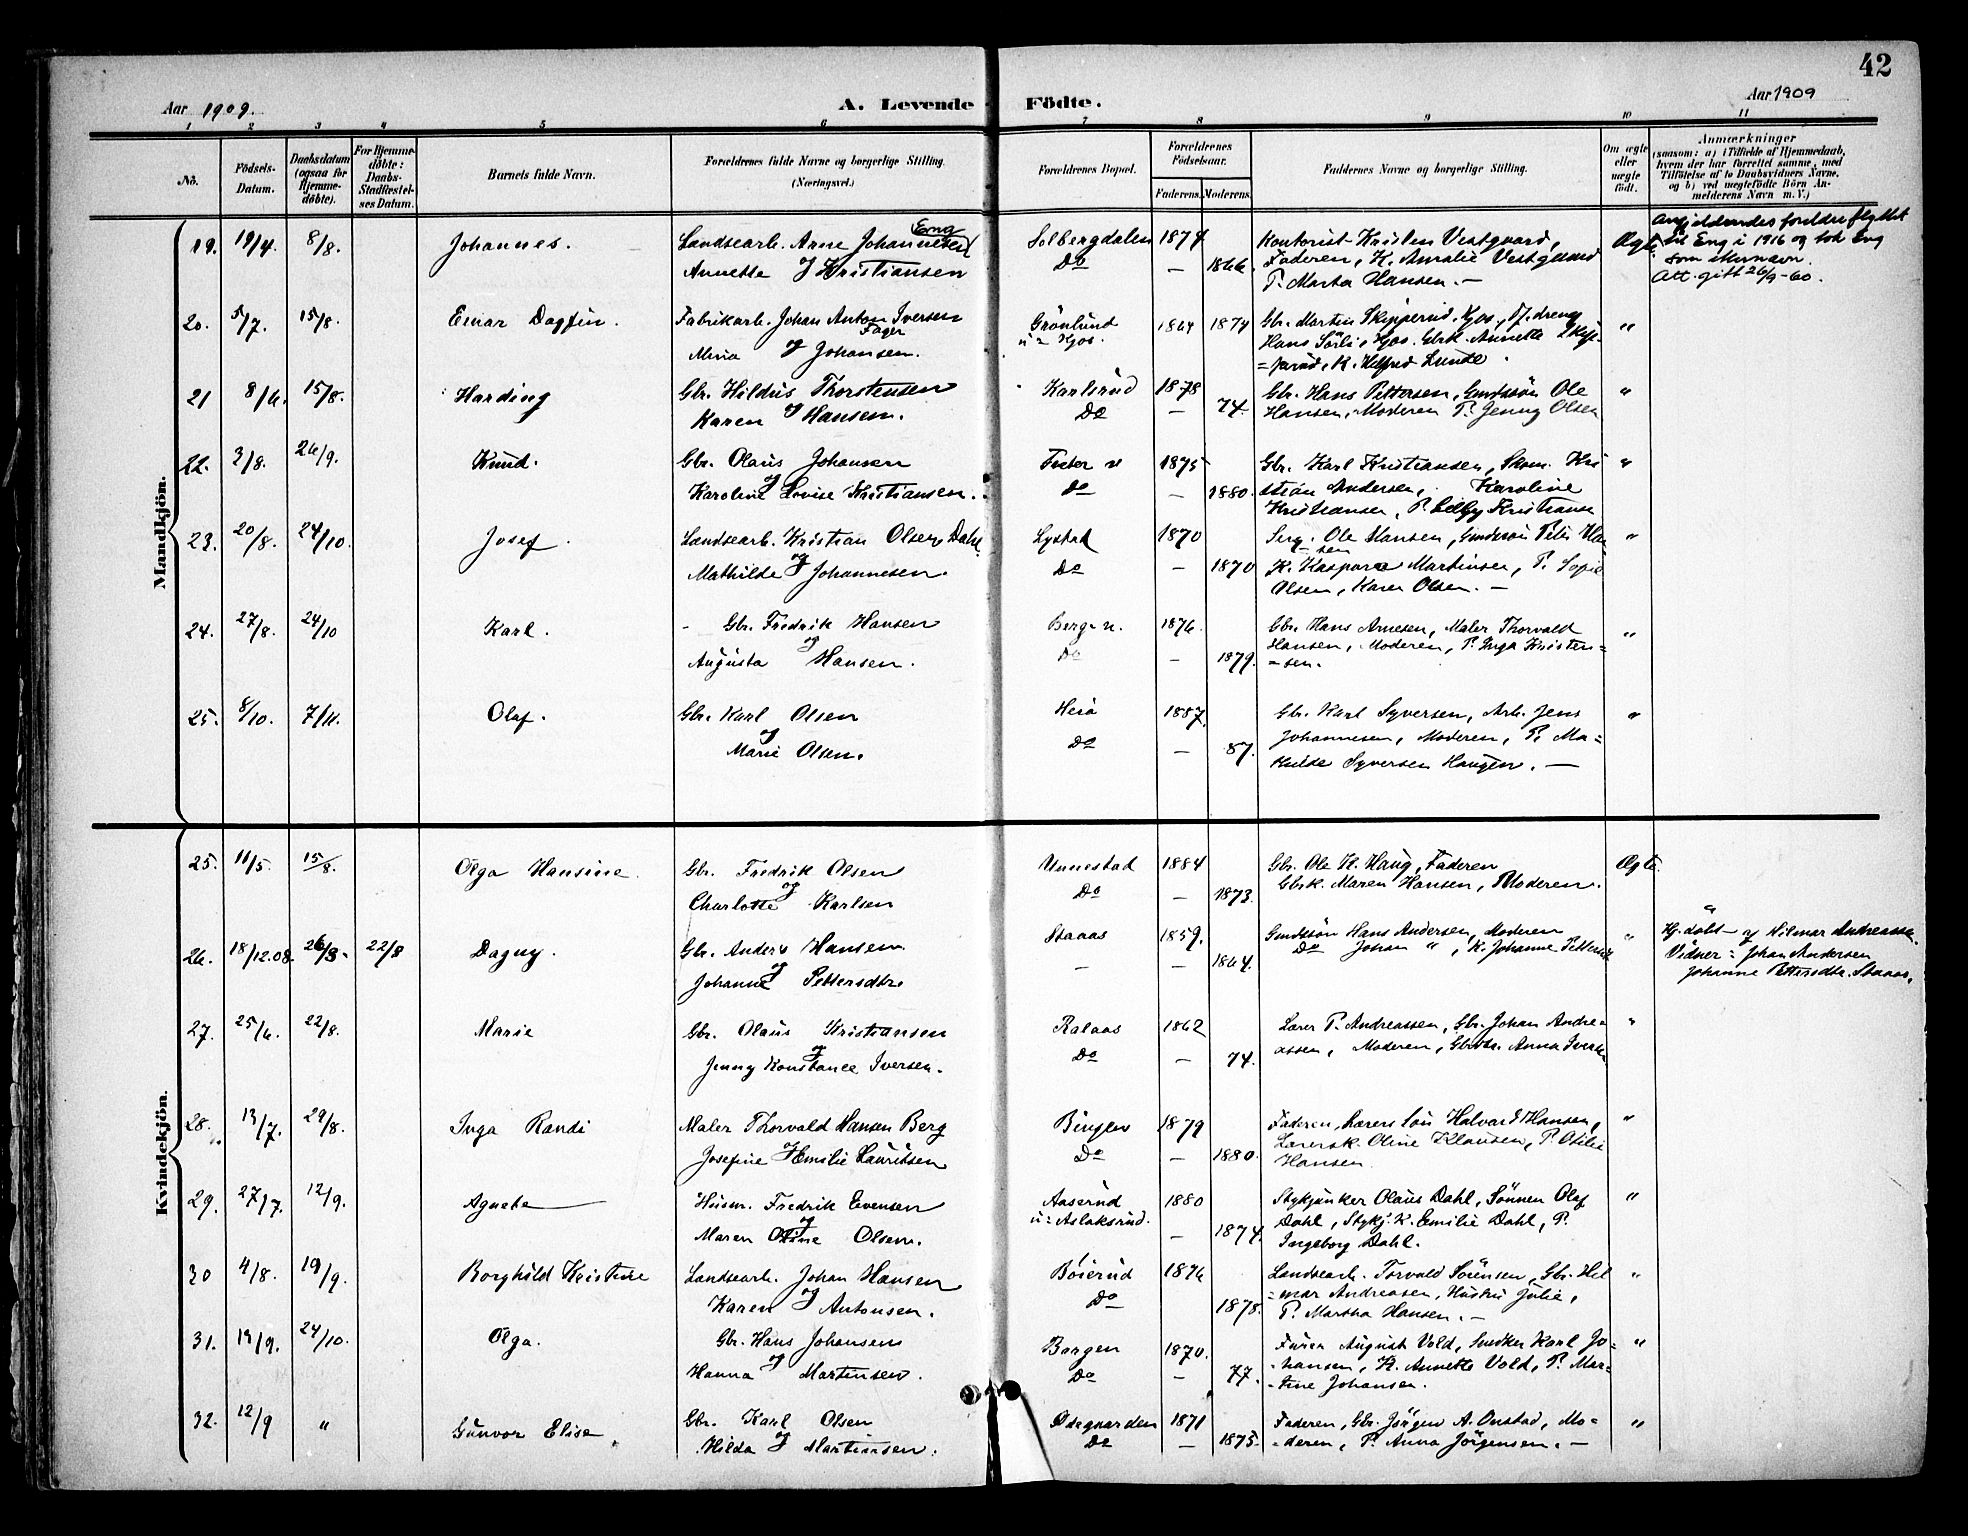 42
Aar 1909.
A. Levende Födte.
Aar 1909
1 2 3 4 5 6 7 8 9 10 11
No.
Födsels-Datum.
Daabsdatum (ogsaa for Hjemme-döbte).
For Hjemme-döbte: Daabs-Stadfæstel-ses Datum.
Barnets fulde Navn.
Forældrenes fulde Navne og borgerlige Stilling. (Næringsvei.)
Forældrenes Bopæl.
Forældrenes Födselsaar.
Faderens. Moderens.
Faddernes Navne og borgerlige Stilling.
Om ægte eller uægte födt.
Anmærkninger
(saasom: a) i Tilfælde af Hjemmedaab, hvem der har forrettet samme, med Tilföielse af to Daabsvidners Navne, og b) ved uægtefödte Börn An-melderens Navn m. V.)
Mandkjön.
19. 19/4. 8/8. Johannes. Landsearb. Arne Johannesen Eng Solbergdalen 1874 Kontorist Kristen Vestgaard, Ægte
og Annette Kristiansen Do — 1866. Faderen, K. Amalie Vestgaard
P. Marta Hansen. —
foreldre flyttet
til Eng i 1916 og tok Eng
som slevnavn.
Att. gitt 26/9-60.
20. 5/7. 15/8. Einar Dagfin. Fabrikarb. Johan Anton Iversen Fager Grönlund 1864 1874 Gbr. Martin Skipperud, Kjos, Tj.dreng "
og Mina Johansen. u= Kjos. Hans Sörli, Kjos. Gbrk. Annette Skip-
=perud, K. Helfred Lunde.
21 8/6. 15/8. Harding Gbr. Hildus Thorstensen Karlsrud 1878 Gbr. Hans Pettersen, Gmdssön Ole "
og Karen Hansen. Do — 74. Hansen, Moderen P. Jenny Olsen
22. 3/8. 26/9. Knud. Gbr. Olaus Johansen 1875 Gbr. Karl Kristiansen, Skom. Kri "
og Karoline Lovise Kristiansen. do — 1880. stian Andersen, Karoline
Kristiansen, P. Kristianse
23. 20/8. 24/10. Josef. Landsearb. Kristian Olsen Dahl. Lystad 1870 Ole Hansen, Gmdssön Han "
og Mathilde Johannesen. Do — 1870 sen K. Kaspara Martinsen, P. Sofie
Olsen, Karen Olsen. —
24. 27/8. 24/10 Karl. Gbr. Fredrik Hansen Berg n. 1876. Gbr. Hans Arnesen, Maler Thorvald "
og Augusta Hansen. Do — 1879. Hansen, Moderen, P. Inga Kristen=
=sen.
25. 8/10. 7/11. Olaf. Gbr. Karl Olsen 1887. Gbr. Karl Syversen, Arb. Jens "
og Marie Olsen. Do — 87. Johannesen, Moderen, P. Ma=
thilde Syversen Haugen. —
Kvindekjön.
25. 11/5. 15/8. Olga Hansine. Gbr. Fredrik Olsen Unnestad 1884 Gbr. Ole H. Haug, Faderen Ægte.
og Charlotte Karlsen Do — 1873. Gbrk. Maren Hansen, Moderen.
26. 18/12.08. 22/8 Dagny. Gbr. Anders Hansen Staaas 1859. Gmdssön Hans Andersen, Moderen " Hj.döbt af Hilmar Andreasse.
og Johanne Pettersdtr — — 1864. Do Johan ", K. Johanne Vidner: Johan Andersen
Johanne Pettersdtr. Staaas.
27. 25/6. 22/8. Marie Gbr. Olaus Kristiansen Ralaas 1862 Lærer P. Andreassen, Gbr. Johan Andre= "
og Jenny Konstance Iversen. Do — 74. assen, Moderen, Anna Iversen
28. 13/7. 29/8. Inga Randi Maler Thorvald Hansen Berg Bingen 1879 Faderen, Lærers Sön Halvard Hansen, "
og Josefine Emilie Lauritsen Do — 1880. Lærersk. Oline Klausen, P. Otilie
Hansen.
29. 27/7. 12/9. Agnete Husm. Fredrik Evensen Aaserud 1880 Stykjunker Olaus Dahl, Sönnen Olaf "
og Maren Oline Olsen. u= Aslaksrud. — 1874. Dahl, Stykj.k. Emilie Dahl, P.
Ingeborg Dahl.
30 4/8. 19/9. Borghild Kristine Landsearb. Johan Hansen Böierud 1876 Landsearb. Torvald Sörensen, Gbr. Hil "
og Karen Antonsen. Do — 1878. =mar Andreasen, Hustru Julie,
P. Martha Hansen. —
31. 19/9. 24/10. Olga. Gbr. Hans Johansen Borgen 1870. August Vold, Snedker Karl Jo= "
og Hanna Martinsen. Do — 77. =hansen, K. Annette Vold, P. Mar=
=tine Johansen.
32. 12/9 " Gunvor Elise. Gbr. Karl Olsen Ödegaarden 1871 Faderen, Gbr. Jörgen A. Onstad, Mo= "
og Hilda Martinsen. Do — 1875. =deren, P. Anna Jörgensen. —